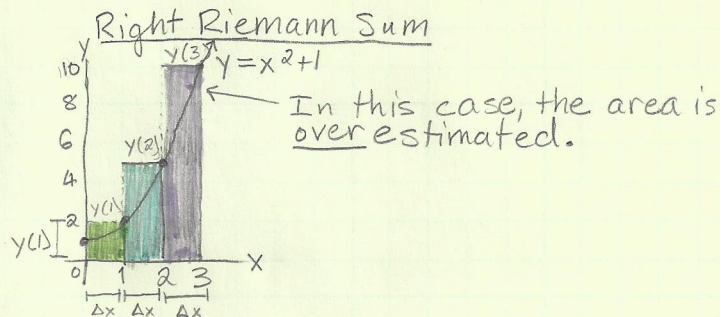 Right Riemann Sum
y
y(3)
y=x²+1
10
8
6
4
2
0
In this case, the area is
overestimated.
y(2)
y(1)
y(1)
1 2 3
x
Δx Δx Δx